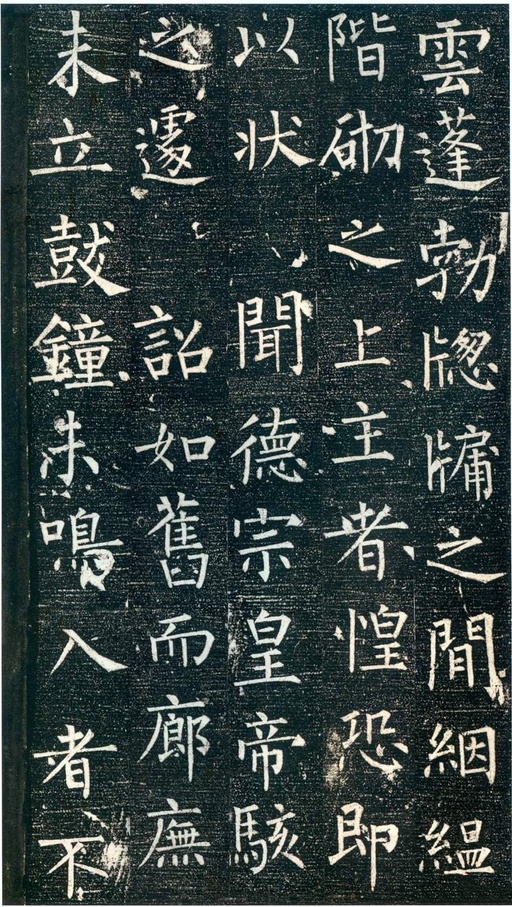 雲蓬勃牕牖之間絪縕
階砌之上主者惶恐即
以状聞德宗皇帝駭
之遽詔如舊而廊廡
未立鼓鐘未鳴入者不